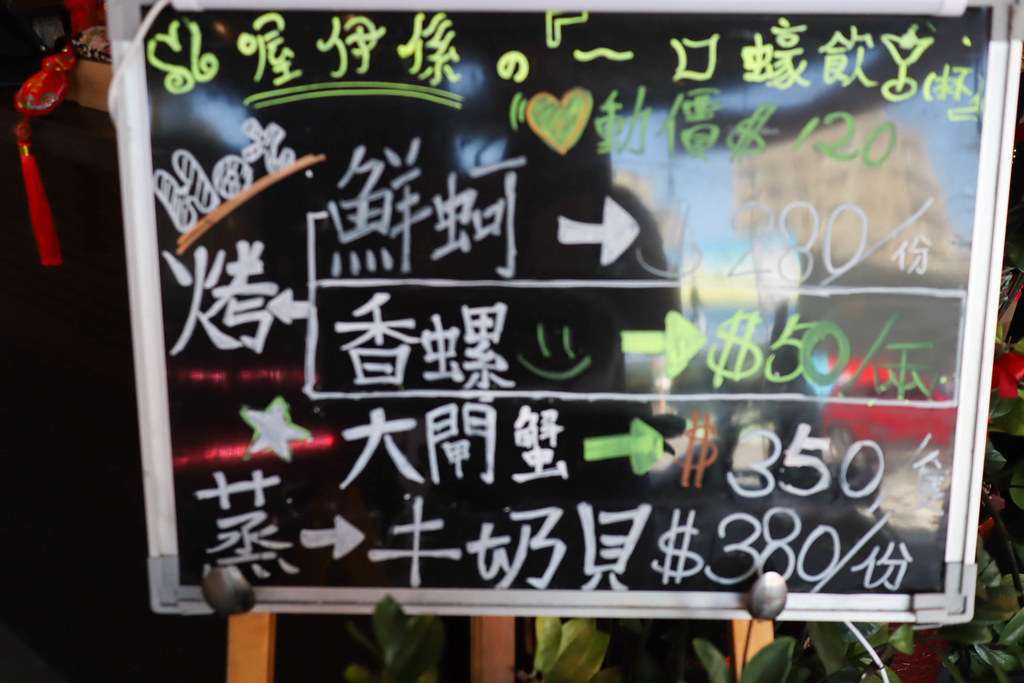 喔伊係の『一口蠔飲(杯)』
動價$120
Hot
鮮蚵 280/份
烤
香螺 $50/兩
大閘蟹 $350/隻
蒸 牛奶貝 $380/份